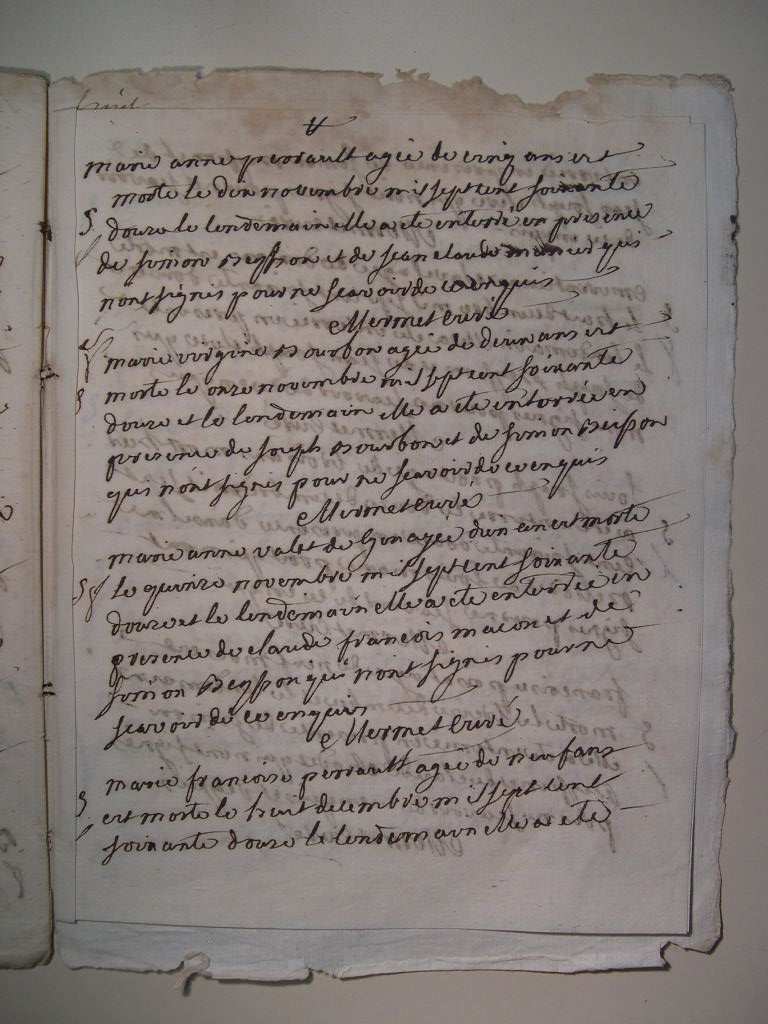 marie anne perrault agée de cinq ans est
morte le dix novembre mil sept cent soixante
douze le lendemain elle a ete enterré en presence
de simon Beysson et de jean claude qui
nont signés pour ne scavoir de ce enquis
Mermet curé
marie virgine Bourbon agée de deux ans est
morte le onze novembre mil sept cent soixante
douze et le lendemain elle a ete enterrée en
presence de joseph Bourbon et de simon Beisson
qui nont signés pour ne scavoir de ce enquis
Mermet curé
marie anne valet de lyon agée dun an est morte
le quinze novembre mil sept cent soixante
douze et le lendemain elle a ete enterrée en
presence de claude francois macon et de
simon Beysson qui nont signés pour ne
scavoir de ce enquis
Mermet curé
marie francoise perrault agée de neuf ans
est morte le huit decembre mil sept cent
soixante douze le lendemain elle a ete